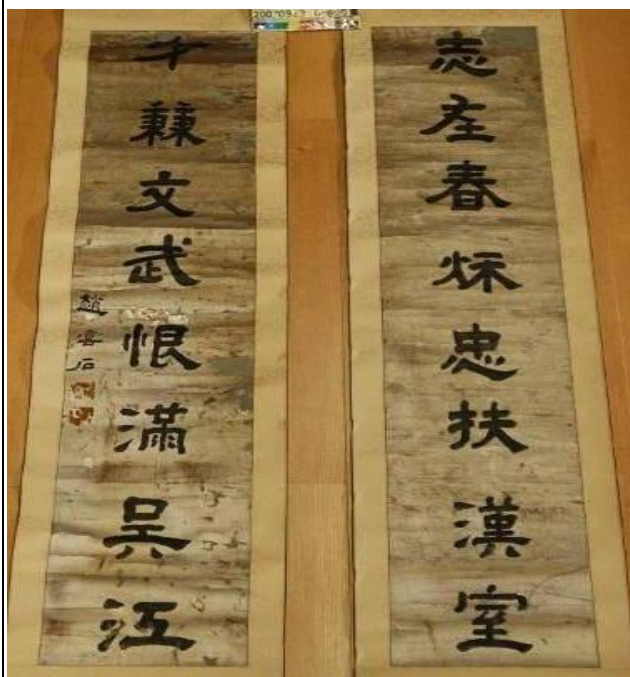 志在春秋忠扶漢室
才兼文武恨滿吳江
趙雲石